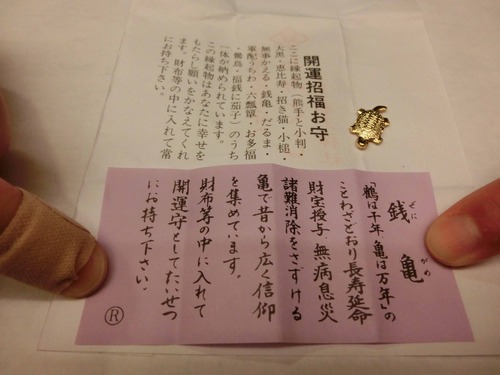 開運招福お守
ここに縁起物（熊手と小判・
大黒・恵比寿・招き猫・小槌・
無事かえる・銭亀・だるま・
軍配うちわ・六瓢箪・お多福
・鷽鳥・福銭に茄子）のうち
一体が納められています。
この縁起物はあなたに幸せを
もたらし願いをかなえてくれ
ます。財布等の中に入れて常
にお持ち下さい。
銭亀
ぜにがめ
「鶴は千年、亀は万年」の
ことわざどおり長寿延命
財宝授与、無病息災
諸難消除をさずける
亀で昔から広く信仰
を集めています。
財布等の中に入れて
開運守としてたいせつ
にお持ち下さい。
®